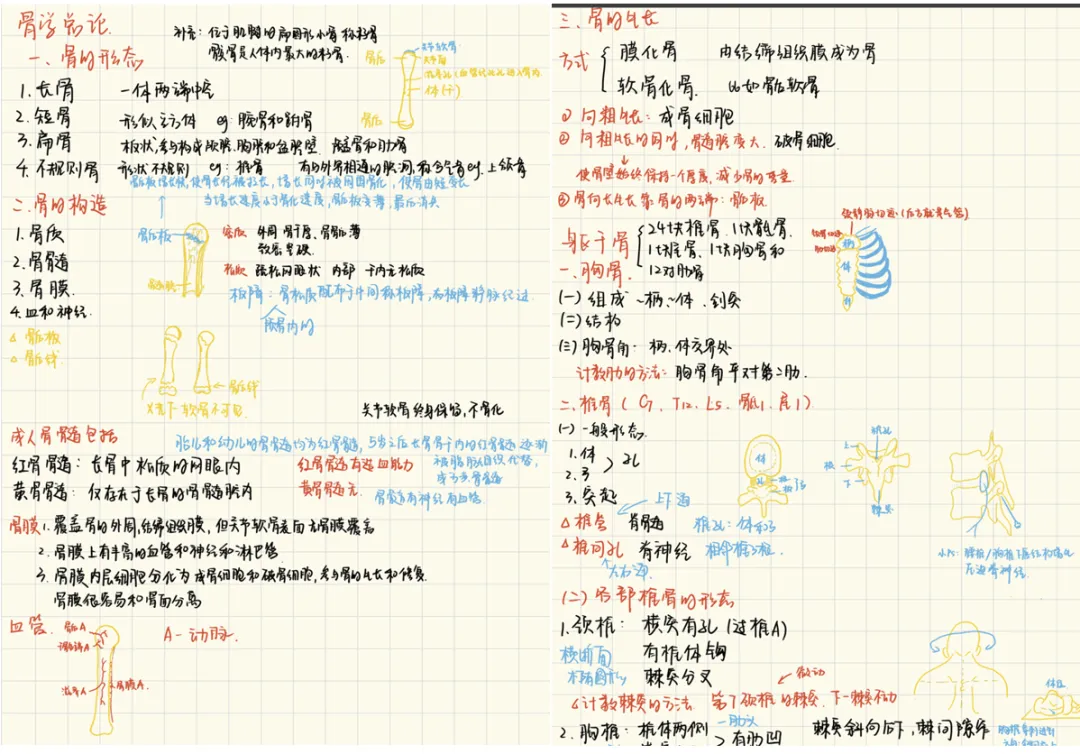 骨学总论
补充：位于肌腱内的扁圆形小骨称籽骨
髌骨是人体内最大的籽骨.
一、骨的形态
骨骺
关节软骨
关节面
体(干)
骨骺
1.长骨 一体两端中空
2.短骨 形似立方体 eg:腕骨和跗骨
3.扁骨 板状,参与构成颅腔.胸腔和盆腔壁 颅盖骨和肋骨
4.不规则骨 形状不规则 eg：椎骨 有与外界相通的腔洞,称含气骨eg.上颌骨
当增长速度小于骨化速度,骺板变薄.最后消失
二.骨的构造
1.骨质
2.骨骨髓
3.骨膜.
4.血和神经.
骨骺板
密质 外周 骨干厚、骨骺薄
致密坚硬
松质 疏松网眼状 内部
板障：骨松质
颅骨内的
△ 骨骺板
△ 骨骺线.
骨骺线
X光下软骨不可见
关节软骨终身保留,不骨化
成人骨骨髓包括
胎儿和幼儿的骨骨髓均为红骨髓, 5岁之后长骨骨干内的红骨髓逐渐
被脂肪组织代替,
成为黄骨髓
红骨骨髓：长骨中松质的网眼内
红骨骨髓有造血能力
黄骨骨髓：仅存在于长骨的骨骨髓腔内
黄骨骨髓无.
骨骨髓有神经有血管
骨膜 1.覆盖骨的外周,结缔组织膜，但关节软骨表面无骨膜覆盖
2.骨膜上有丰富的血管和神经和淋巴管
3.骨膜内层细胞分化为成骨细胞和破骨细胞,参与骨的生长和修复.
骨膜很容易和骨面分离
血管.
骨骺A
滋养A
骨膜A.
A-动脉.
三、骨的生长
方式 膜化骨 由结缔组织膜成为骨
软骨化骨. 比如骨骺软骨
① 向粗生长：成骨细胞
② 向粗生长的同时,骨髓腔变大.破骨细胞.
使骨壁始终保持一个厚度,减少骨的重量
③骨向长生长靠骨的两端：骺板.
躯干骨 24块椎骨.1块骶骨.
1块尾骨、1块胸骨和
12对肋骨
锁骨切迹
肋切迹
柄
体
剑
一.胸骨.
(一) 组成 一柄一体 一剑突
(二)结构
(三)胸骨角：柄、体交界处
计数肋的方法：胸骨角平对第二肋.
二.椎骨 ( C7 、T12、L5、骶1、尾1 )
(一)一般形态.
1.体
2.弓
孔
3.突起
体
孔
棘突
△椎管 脊髓 上下通
椎孔：体和弓
△椎间孔 脊神经 相邻椎弓根.
左右通.
(二) 各部椎骨的形态
1.颈椎： 横突有孔 (过椎A)
横断面
有椎体钩
棘突分叉
△计数棘突的方法 第7颈椎的棘突.下一棘突不动
微动
体位
2.胸椎： 椎体两侧
有肋凹
棘突斜向后下,棘间隙窄